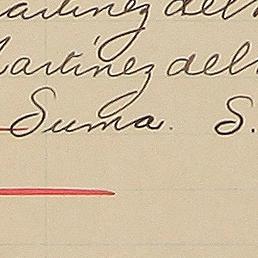 Martinez del
Martinez del
Suma. S.